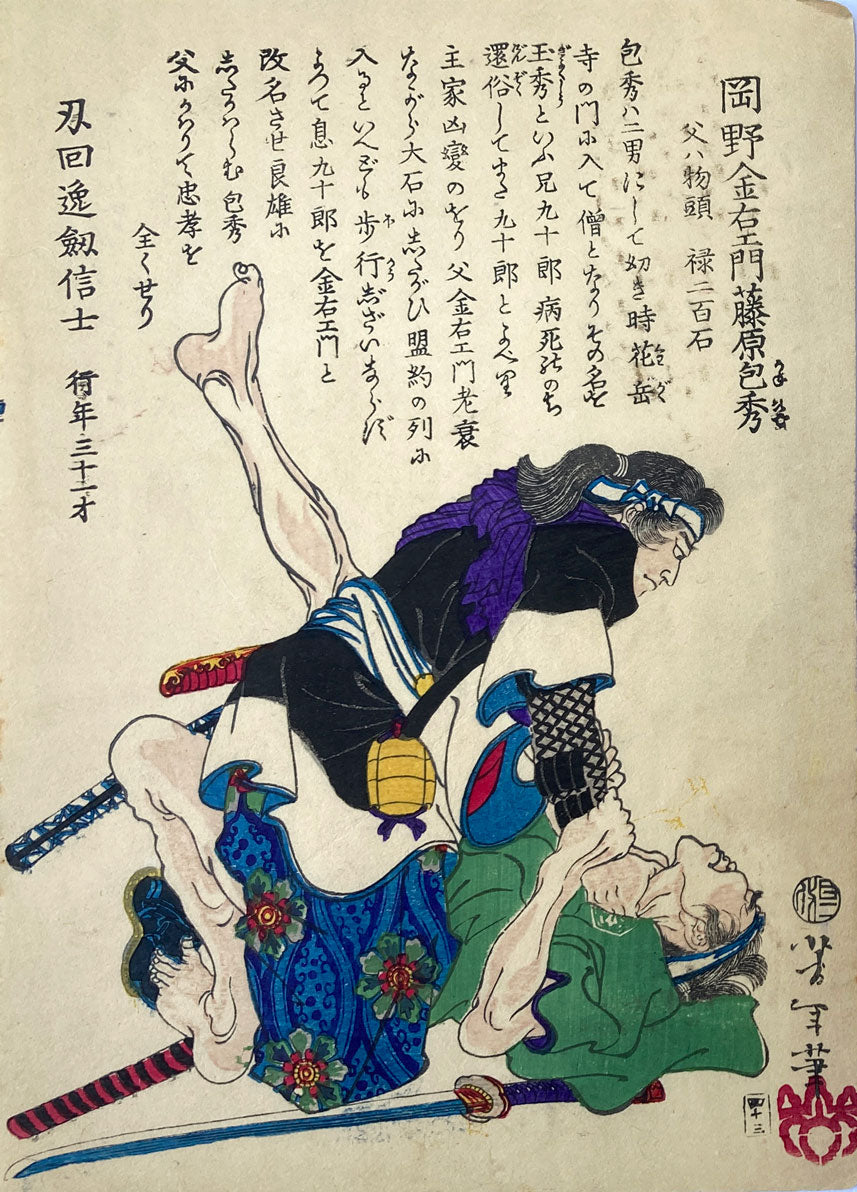 岡野金右エ門藤原包秀
かね ひで
父ハ物頭　禄二百石
包秀ハ二男にして幼き時花岳
寺の門に入て僧となりその名を
玉秀といふ兄九十郎病死のち
還俗してまた九十郎とよべり
主家凶變のをり父金右エ門老衰
ながら大石にしたがひ盟約の列に
入るといへども歩行じざいならず
よつて息九十郎を金右エ門と
改名させ良雄に
したがはしむ包秀
父にかはりて忠孝を
全くせり
刃回逸劔信士　行年三十一才
芳年筆
四十三